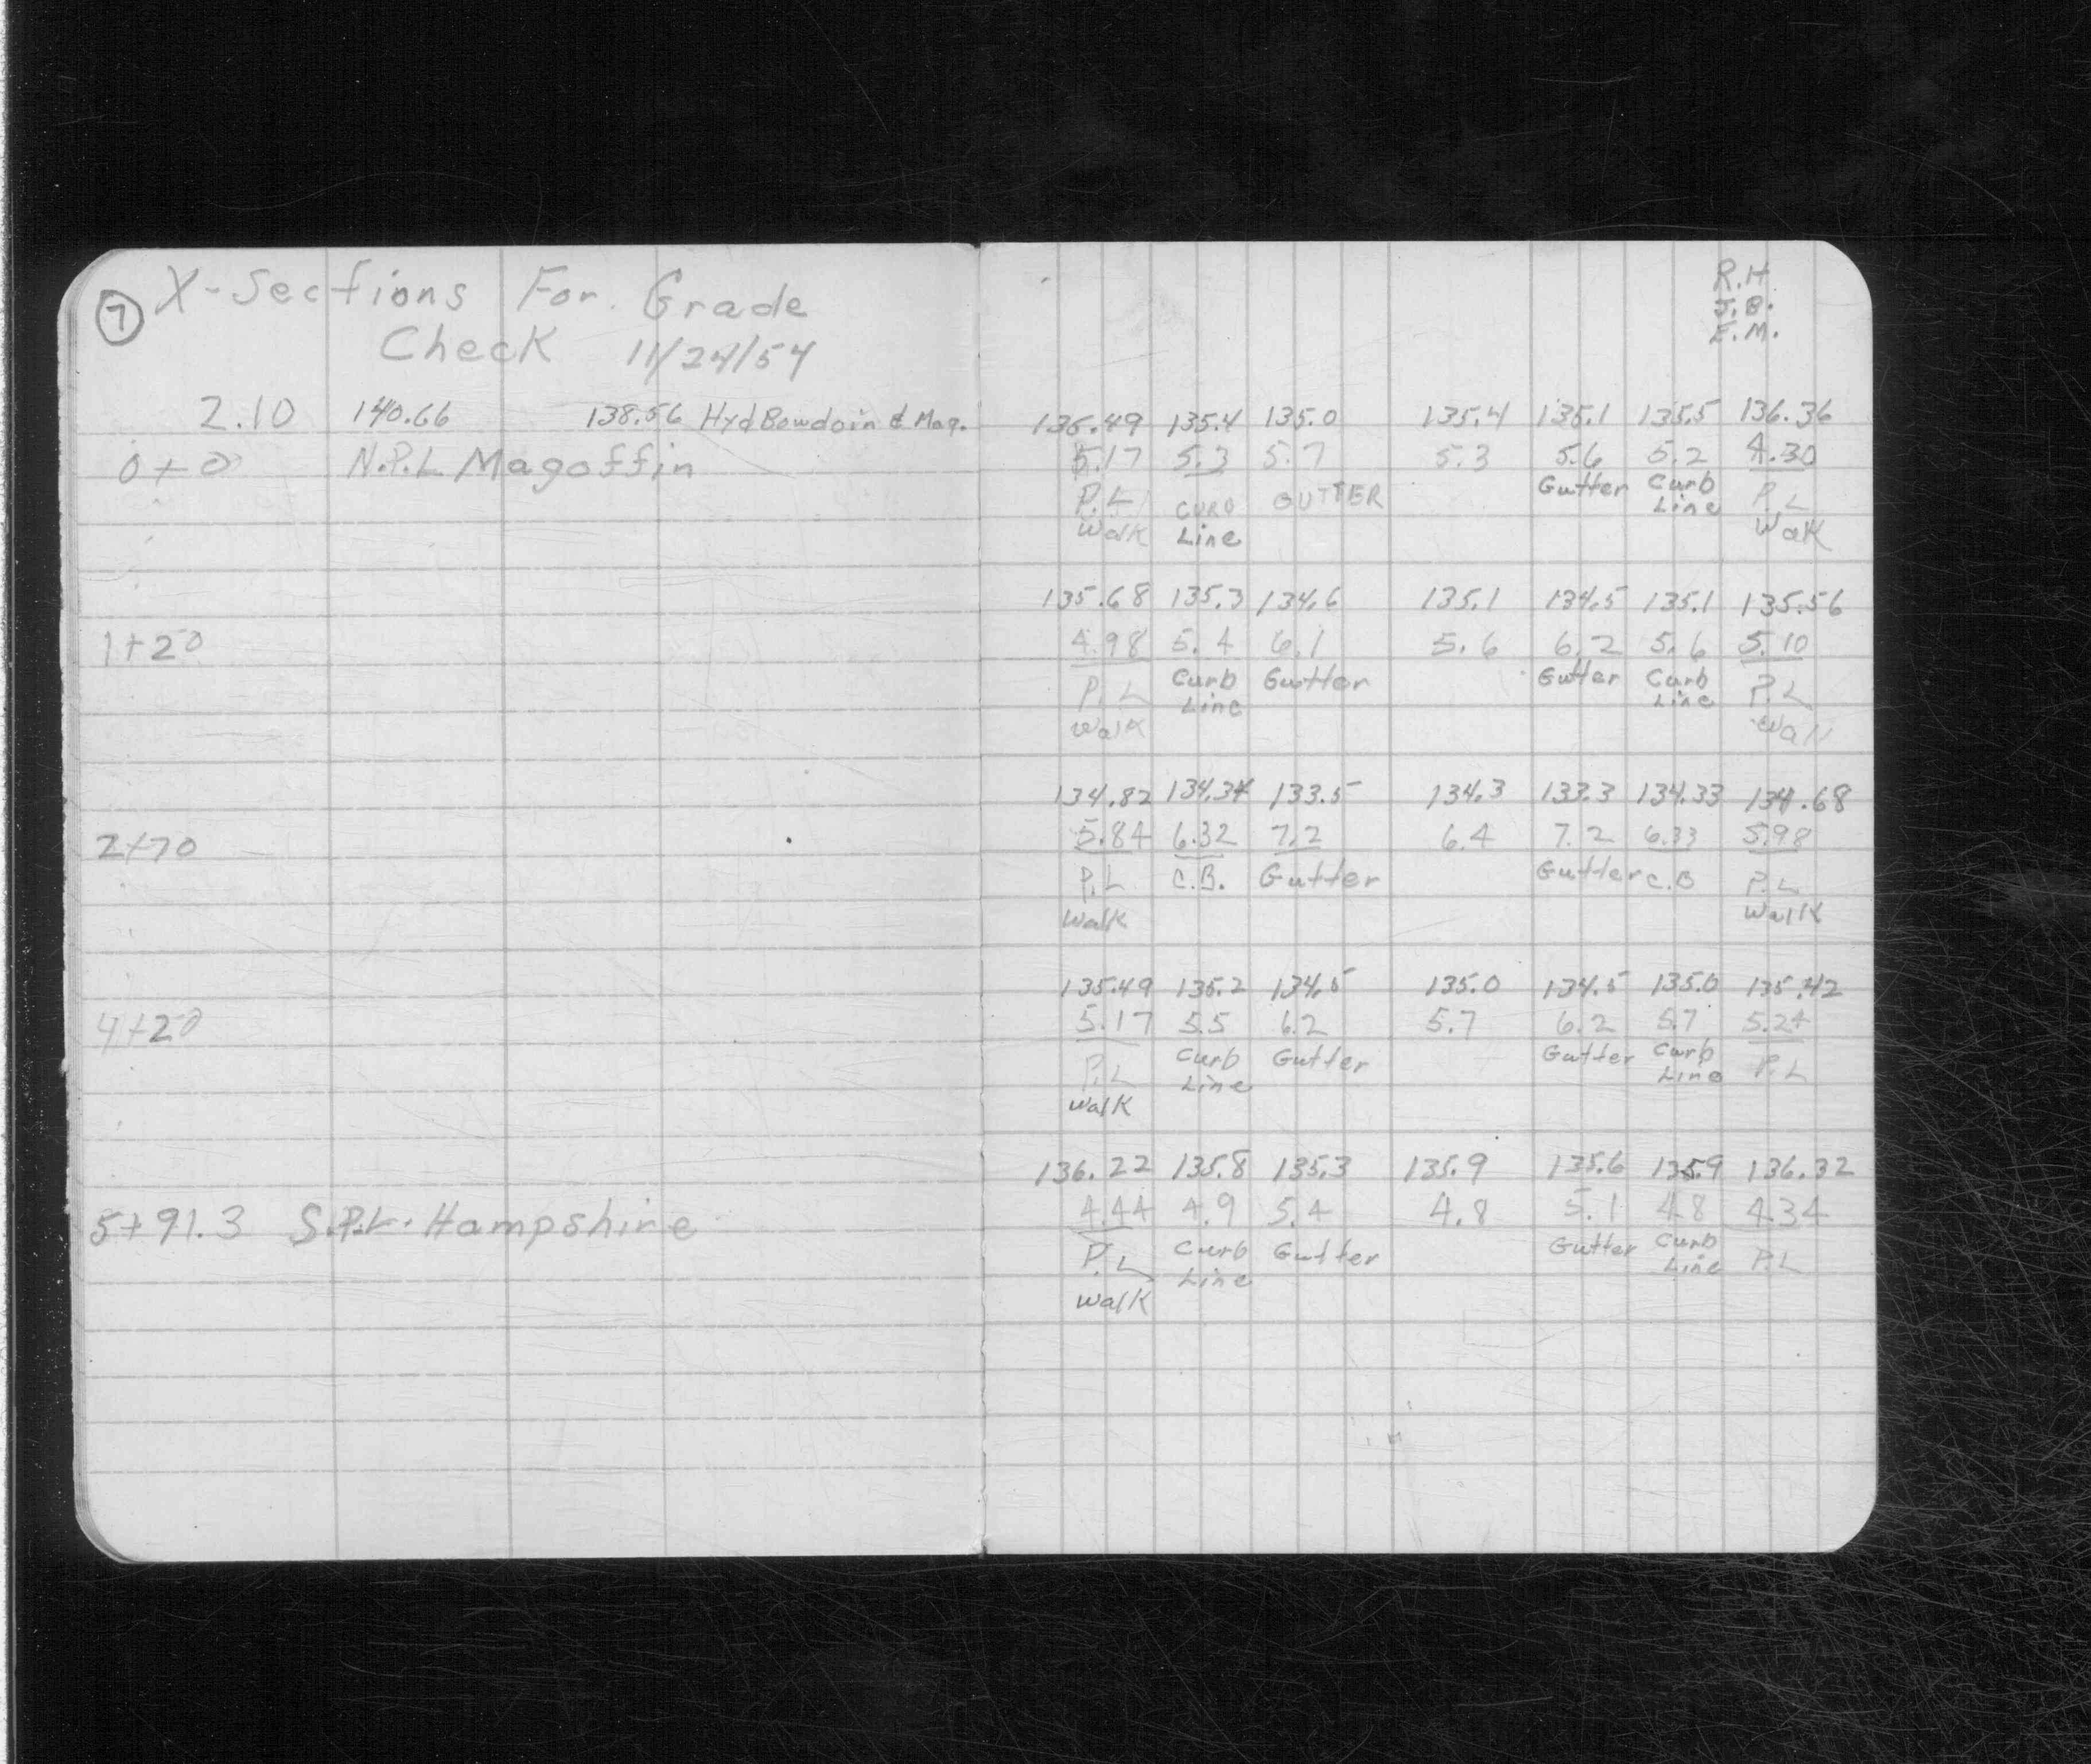 7 X-Sections For Grade
Check 11/24/54
R.H.
J.B.
E.M.
2.10 140.66 138.56 Hyd Bowdoin & Mag.
135.49 135.4 135.0 135.4 135.1 135.5 136.36
0+0 N.P.L Magoffin
5.17 5.3 5.7 5.3 5.6 5.2 4.30
P.L CURB GUTTER Gutter Curb P.L
Walk Line Line Walk
135.68 135.3 134.6 135.1 134.5 135.1 135.56
1+20 4.98 5.4 6.1 5.6 6.2 5.6 5.10
P.L Curb Gutter Gutter Curb P.L
Walk Line Line Wall
134.82 134.34 133.5 134.3 133.3 134.33 134.68
2+70 5.84 6.32 7.2 6.4 7.2 6.33 5.98
P.L C.B. Gutter Gutter C.B P.L
Walk Walk
135.49 135.2 134.5 135.0 134.5 135.0 135.42
4+20 5.17 5.5 6.2 5.7 6.2 5.7 5.24
P.L Curb Gutter Gutter Curb P.L
Walk Line Line
136.22 135.8 135.3 135.9 135.6 135.9 136.32
5+91.3 S.P.L. Hampshire
4.44 4.9 5.4 4.8 5.1 4.8 4.34
P.L Curb Gutter Gutter Curb P.L
Walk Line Line